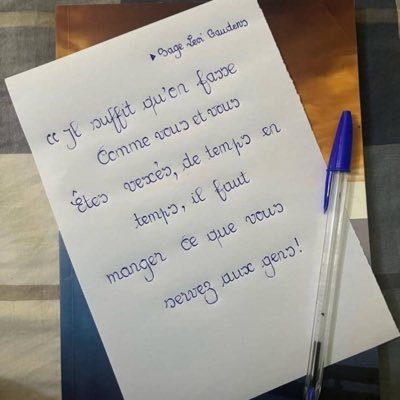 ▸Sage Levi Gaudens
“Il suffit qu'on fasse
Comme vous et vous
Êtes vexés, de temps en
temps, il faut
manger ce que vous
servez aux gens!